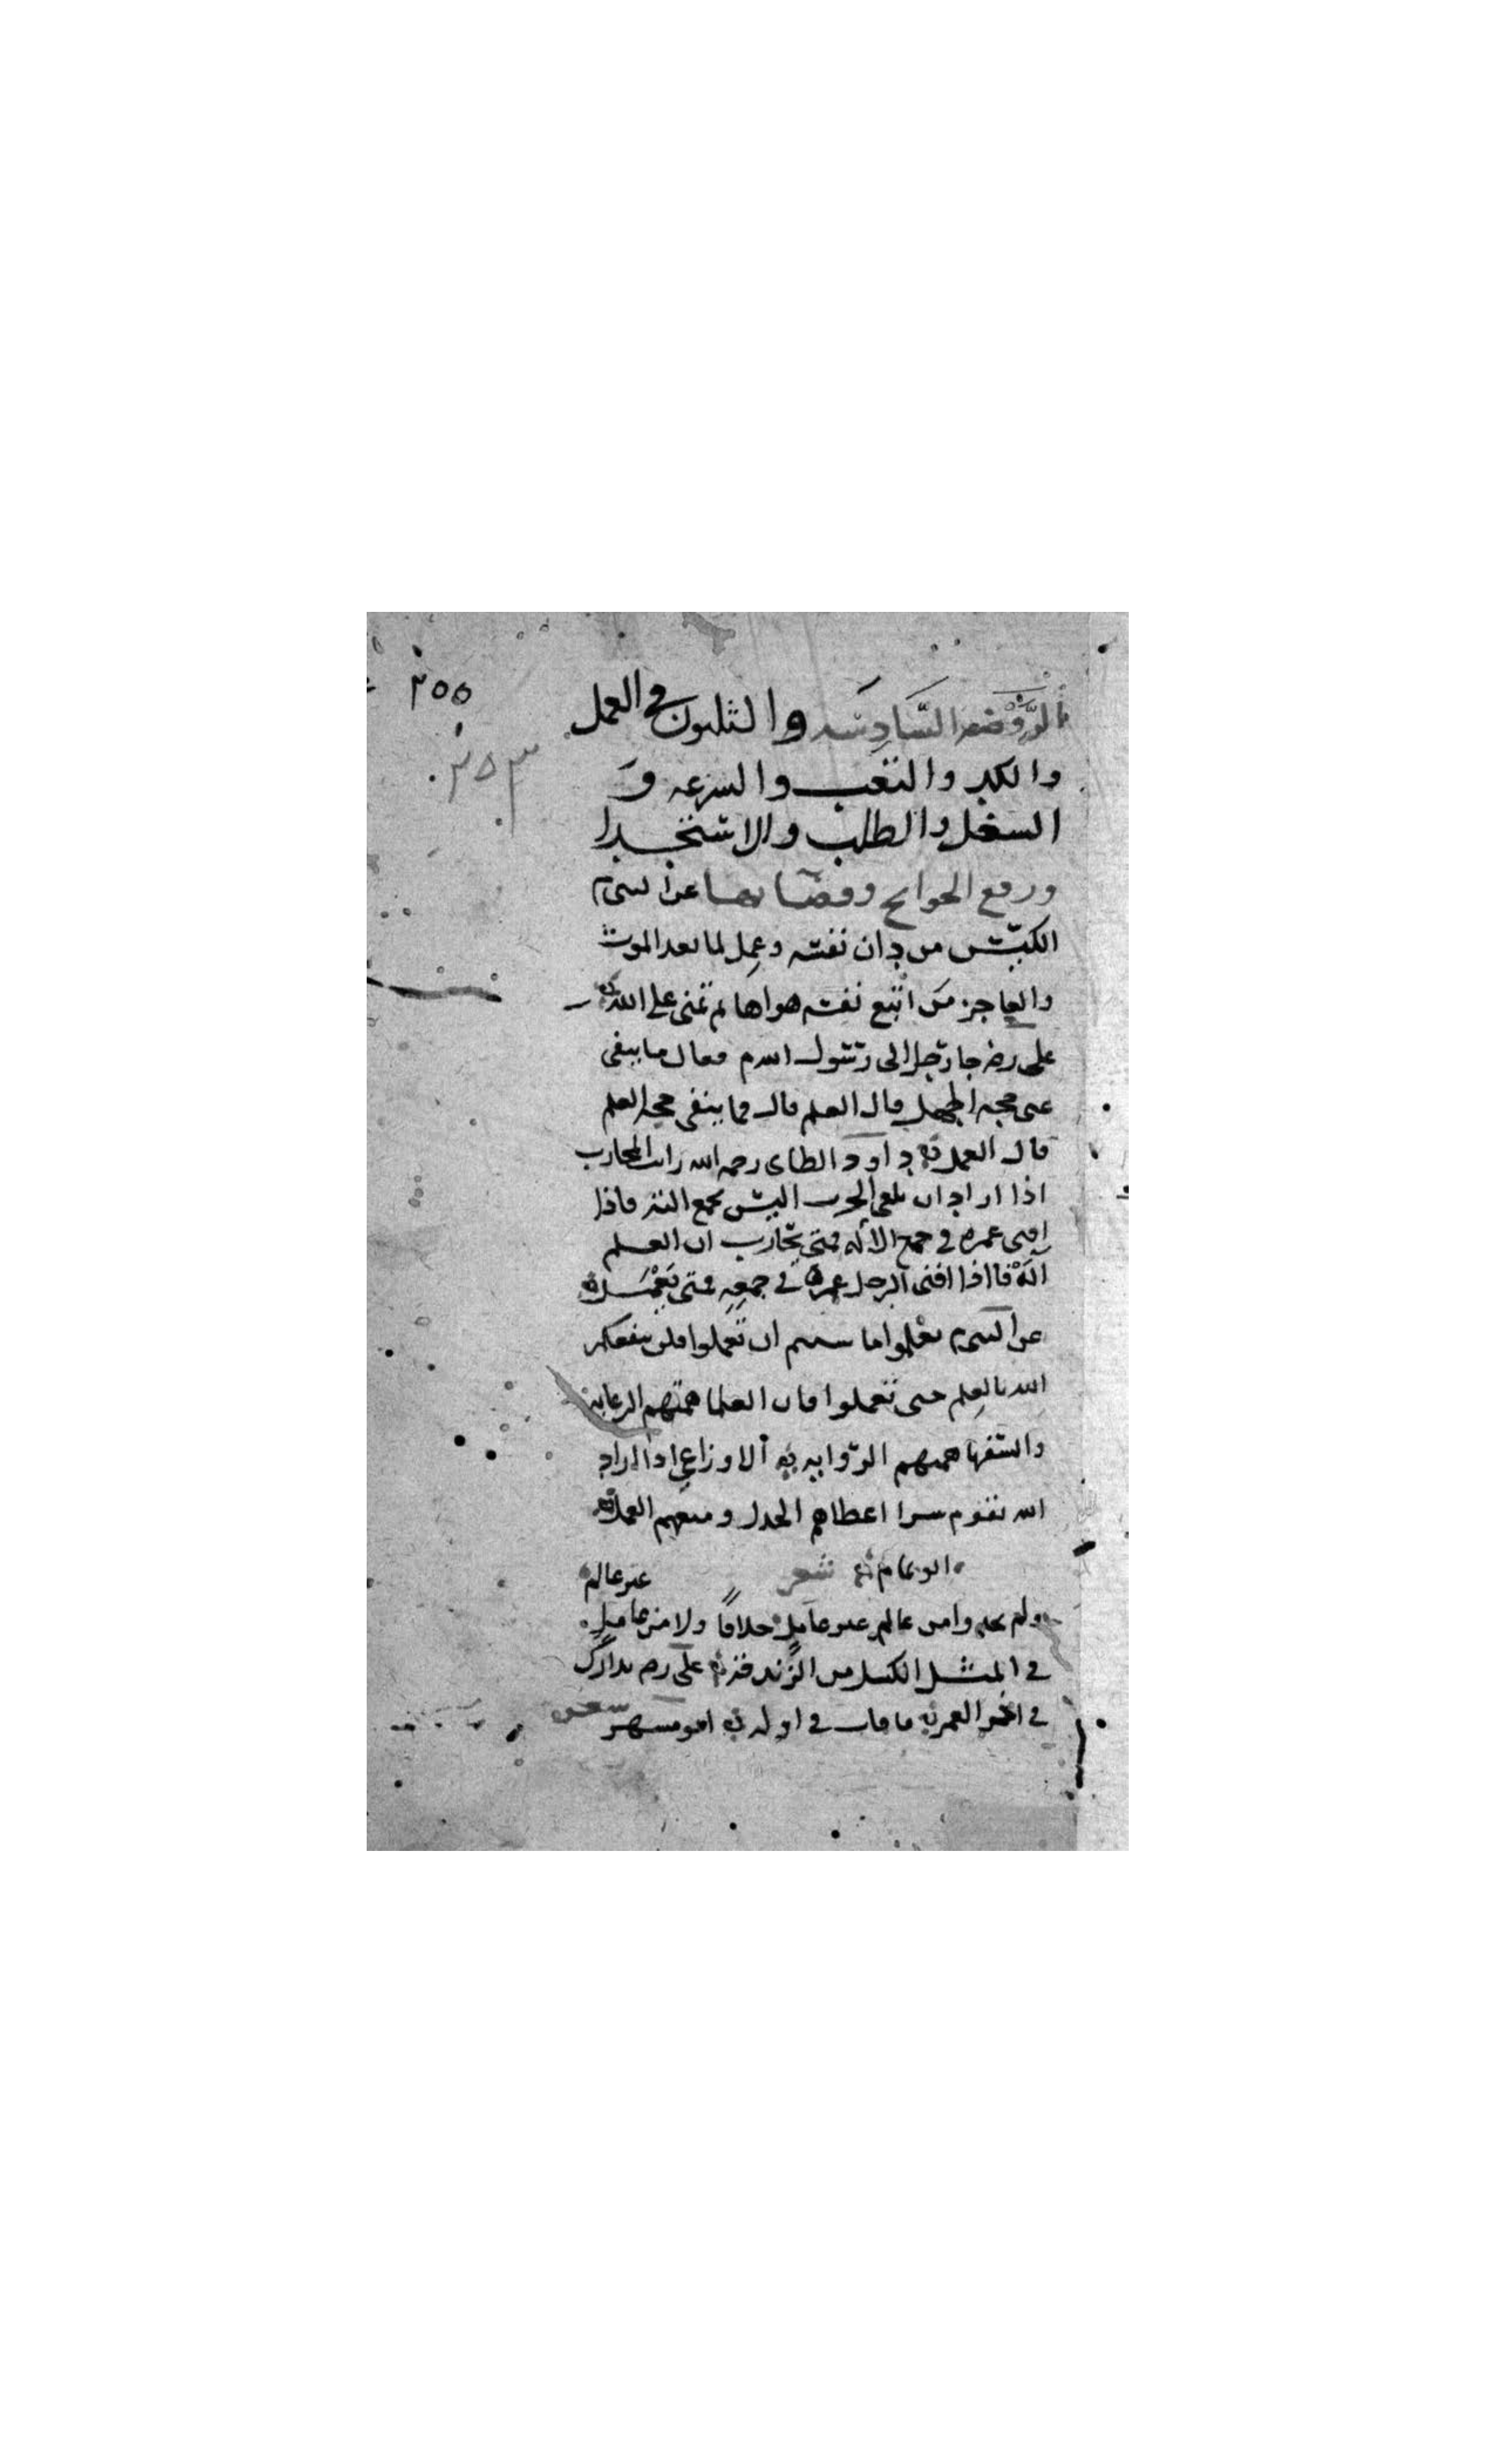 ٢٥٥
الرَّوْضة السَّادِسَة والثلثون في العمل
٢٥٣
والكد والتعب والسرعه وَ
الشغل والطلب والاستنجد
ورفع الحوائج وقضائها عن النبي م
الكيّس من دان نفسه وعمِل لما بعد الموت
والعاجز مَن اتبع نفسه هواها ثم تمنى على الله
على رضه جا رجل الى رسول الله م فقال ما ينفي
عنى حجه الجهل قال العلم قال فما ينفي حجه العلم
قال العمل داود الطاى رحمه الله رايت المحارب
اذا اراد ان يلقى الحرب اليس يجمع الته فاذا
افنى عمره في جمع الاله فمتى يحارب ان العلم
آلَةٌ فااذا افنى الرجل عمره في جمعه فمتى يَعْمَل
عن النبي م تعلموا ما شيتم ان تعملوا فلن ينفعكم
الله بالعِلم حتى تعملوا فان العلما همتهم الرعايه
والسفها همتهم الرّوايه الاوزاعي اذا اراد
الله بقوم سرا اعطاهم الجدل ومنعهم العمل
ابو تمام شعر
غير عالم
ولم يحمدوا من عالم غير عامِلٍ خلافًا ولا من عامِلٍ
في المثل الكسل من الزندقة على رضه تدارك
في اخر العمر ما فات في اوله ابو مسهر شعر